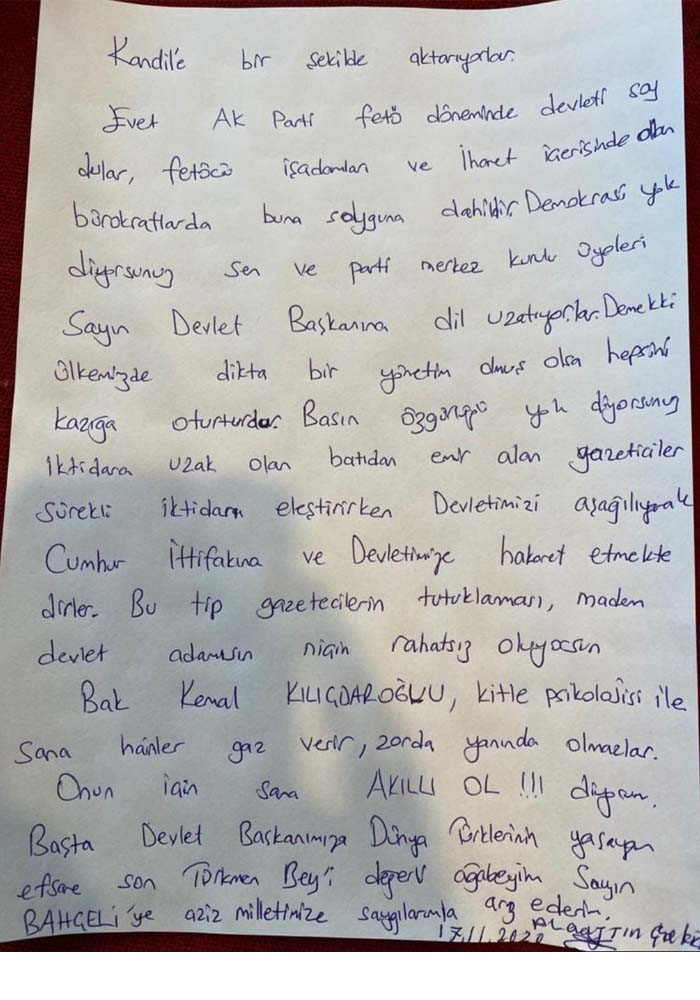 Kandil'e bir şekilde aktarıyorlar.
Evet AK Parti fetö döneminde devleti soy
dular, fetöcü işadamları ve İhanet içerisinde olan
bürokratlarda buna soyguna dahildir. Demokrasi yok
diyorsunuz sen ve parti merkez kurulu üyeleri
Sayın Devlet Başkanına dil uzatıyorlar. Demekki
ülkemizde dikta bir yönetim olmuş olsa hepsini
kazığa oturturdu. Basın özgürlüğü yok diyorsunuz
iktidara uzak olan batıdan emir alan gazeticiler
sürekli iktidarı eleştirirken Devletimizi aşağılıyarak
Cumhur İttifakına ve Devletimize hakaret etmekte
dirler. Bu tip gazetecilerin tutuklanması, maden
devlet adamısın niçin rahatsız oluyorsun
Bak Kemal KILIÇDAROĞLU, kitle psikolojisi ile
sana hainler gaz verir, zorda yanında olmazlar.
Onun için sana AKILLI OL !!! diyorum.
Başta Devlet Başkanımıza Dünya Türklerinin yaşayan
efsane son Türkmen Bey'i değerli ağabeyim Sayın
BAHÇELİ'ye aziz milletimize saygılarımla arz ederim.
17.11.2020